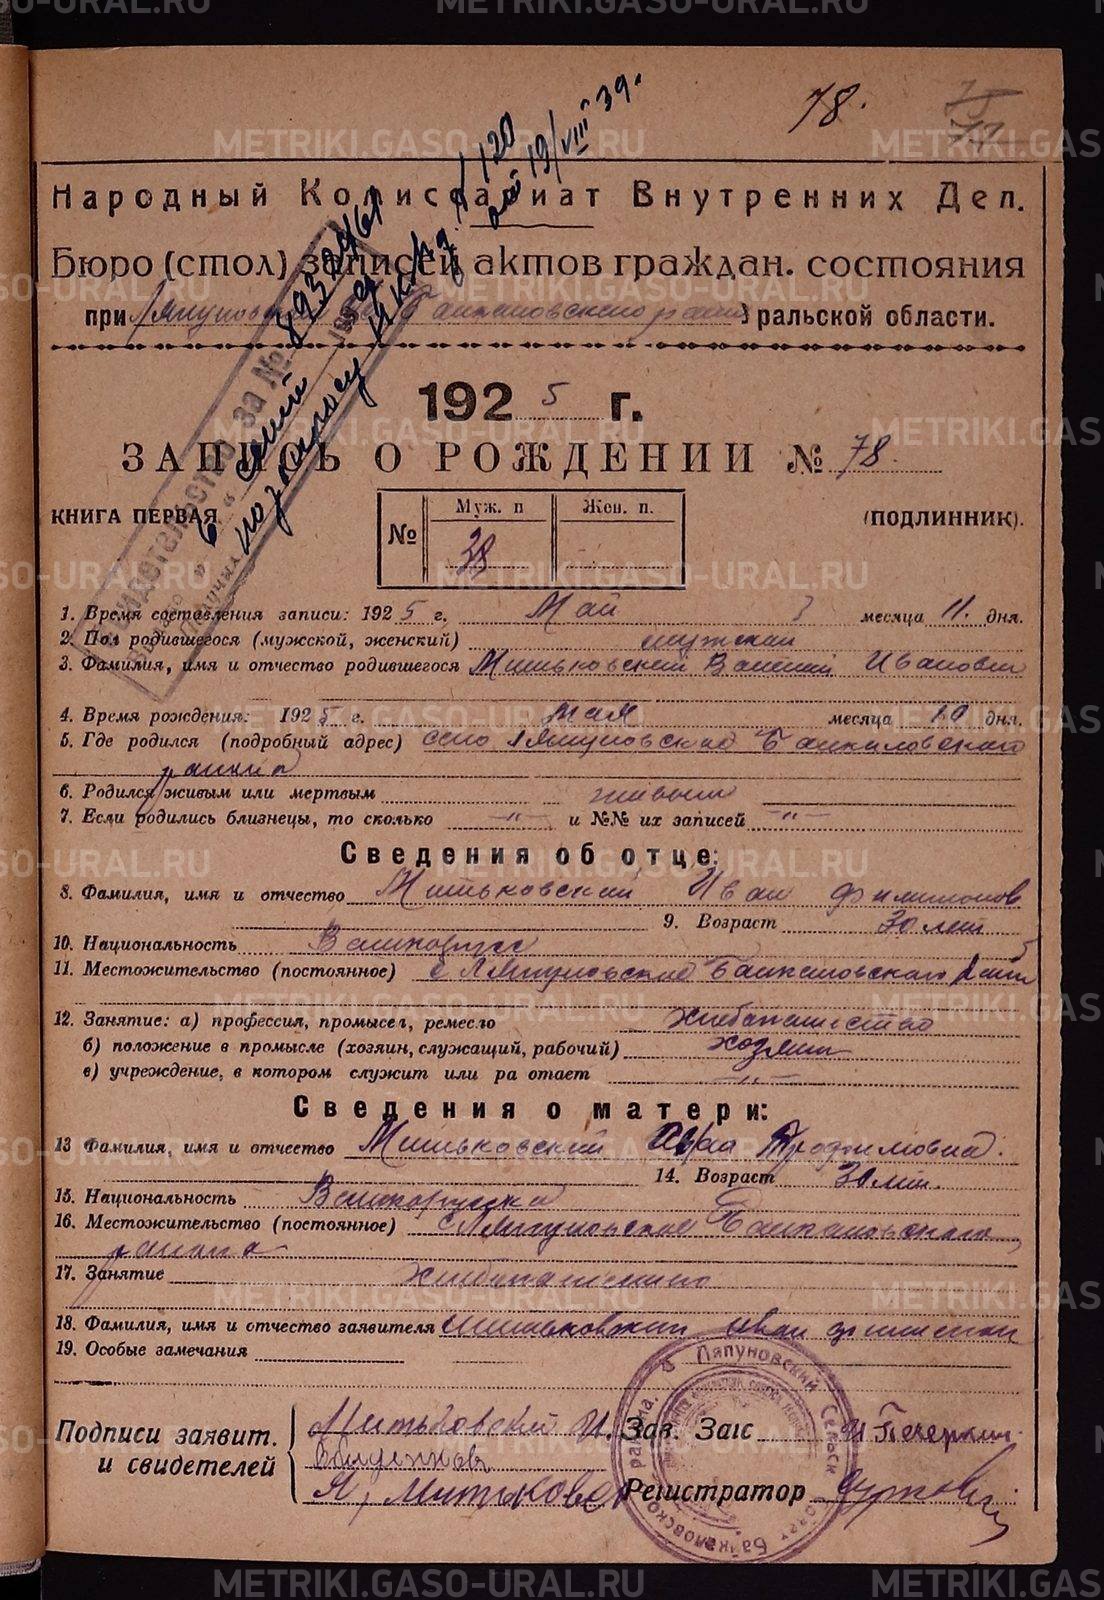 78.
Народный Комиссариат Внутренних Дел.
Бюро (стол) записей актов граждан. состояния
при Ляпуновском Байкаловского рай Уральской области.
1925 г.
ЗАПИСЬ О РОЖДЕНИИ № 78.
КНИГА ПЕРВАЯ. (ПОДЛИННИК).
№ Муж. п Жен. п.
38
Свидетельство за №
120
от 19/VIII 39.
по запросу
1. Время составления записи: 1925 г. Май месяца 11. дня.
2. Пол родившегося (мужской, женский) мужской
3. Фамилия, имя и отчество родившегося Митьковский Иванович
4. Время рождения: 1925 г. Мая месяца 10 дня.
5. Где родился (подробный адрес) село Ляпуновское Байкаловского
района
6. Родился живым или мертвым живым
7. Если родились близнецы, то сколько —"— и №№ их записей —"—
Сведения об отце:
8. Фамилия, имя и отчество Митьковский Иван Филимонов
9. Возраст 30 лет
10. Национальность
11. Местожительство (постоянное) с Ляпуновское Байкаловского рай
12. Занятие: а) профессия, промысел, ремесло хлебопашество
б) положение в промысле (хозяин, служащий, рабочий) хозяин
в) учреждение, в котором служит или ра отает —"—
Сведения о матери:
13 Фамилия, имя и отчество Митьковский Трофимовна.
14. Возраст 30 лет.
15. Национальность
16. Местожительство (постоянное) с. Ляпуновское Байкаловского
района
17. Занятие хлебопашество
18. Фамилия, имя и отчество заявителя Митьковский Иван
19. Особые замечания
Подписи заявит. и свидетелей
Митьковский И.
Я, Митьковс
Зав. Загс И Печеркин
Регистратор
Ляпуновский Сельск Совет Байкаловского района.
METRIKI.GASO-URAL.RU